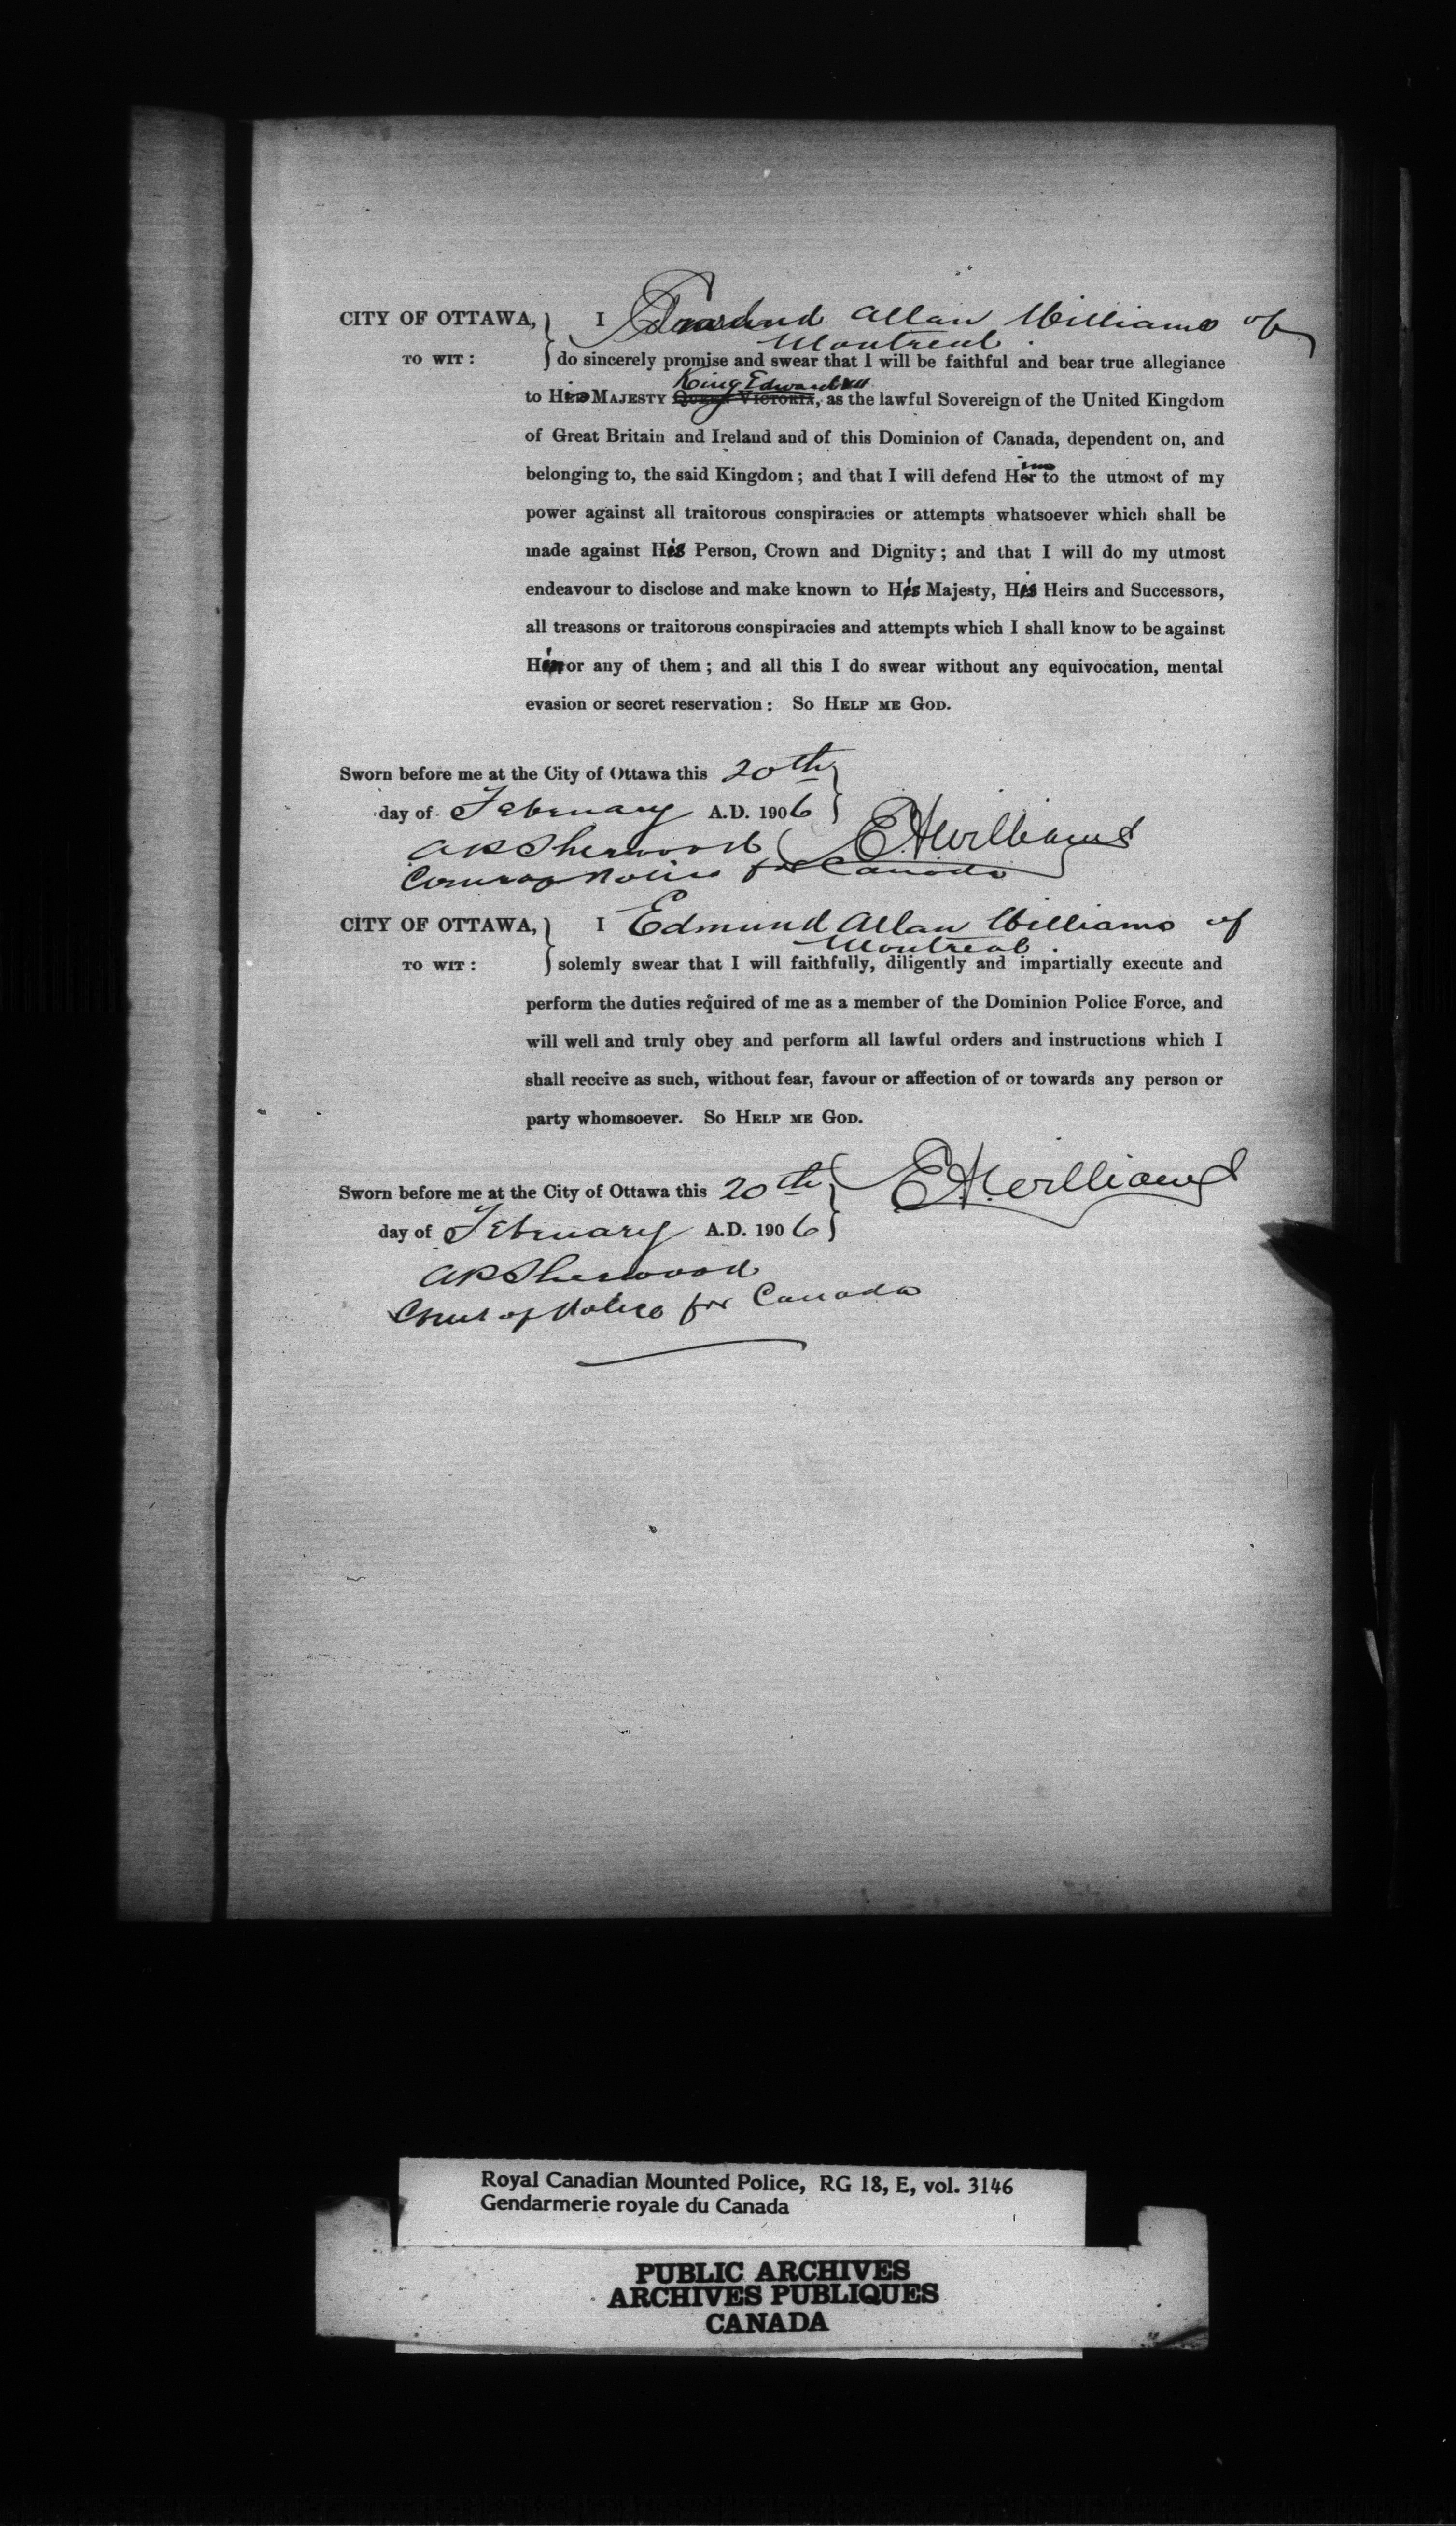 CITY OF OTTAWA, } I Edmund Allan Williams of
Montreal.
TO WIT : } do sincerely promise and swear that I will be faithful and bear true allegiance
King Edward VII
to His MAJESTY QUEEN VICTORIA, as the lawful Sovereign of the United Kingdom
of Great Britain and Ireland and of this Dominion of Canada, dependent on, and
im
belonging to, the said Kingdom ; and that I will defend Her to the utmost of my
power against all traitorous conspiracies or attempts whatsoever which shall be
made against His Person, Crown and Dignity ; and that I will do my utmost
endeavour to disclose and make known to His Majesty, His Heirs and Successors,
all treasons or traitorous conspiracies and attempts which I shall know to be against
Him or any of them ; and all this I do swear without any equivocation, mental
evasion or secret reservation : SO HELP ME GOD.
Sworn before me at the City of Ottawa this 20th }
day of February A.D. 1906 }
AP Sherwood ( E.A. Williams
Comr of Police for Canada
CITY OF OTTAWA, } I Edmund Allan Williams of
Montreal.
TO WIT : } solemly swear that I will faithfully, diligently and impartially execute and
perform the duties required of me as a member of the Dominion Police Force, and
will well and truly obey and perform all lawful orders and instructions which I
shall receive as such, without fear, favour or affection of or towards any person or
party whomsoever. SO HELP ME GOD.
Sworn before me at the City of Ottawa this 20th } ( E.A. Williams
day of February A.D. 1906 }
AP Sherwood
Comr of Police for Canada
Royal Canadian Mounted Police, RG 18, E, vol. 3146
Gendarmerie royale du Canada
PUBLIC ARCHIVES
ARCHIVES PUBLIQUES
CANADA